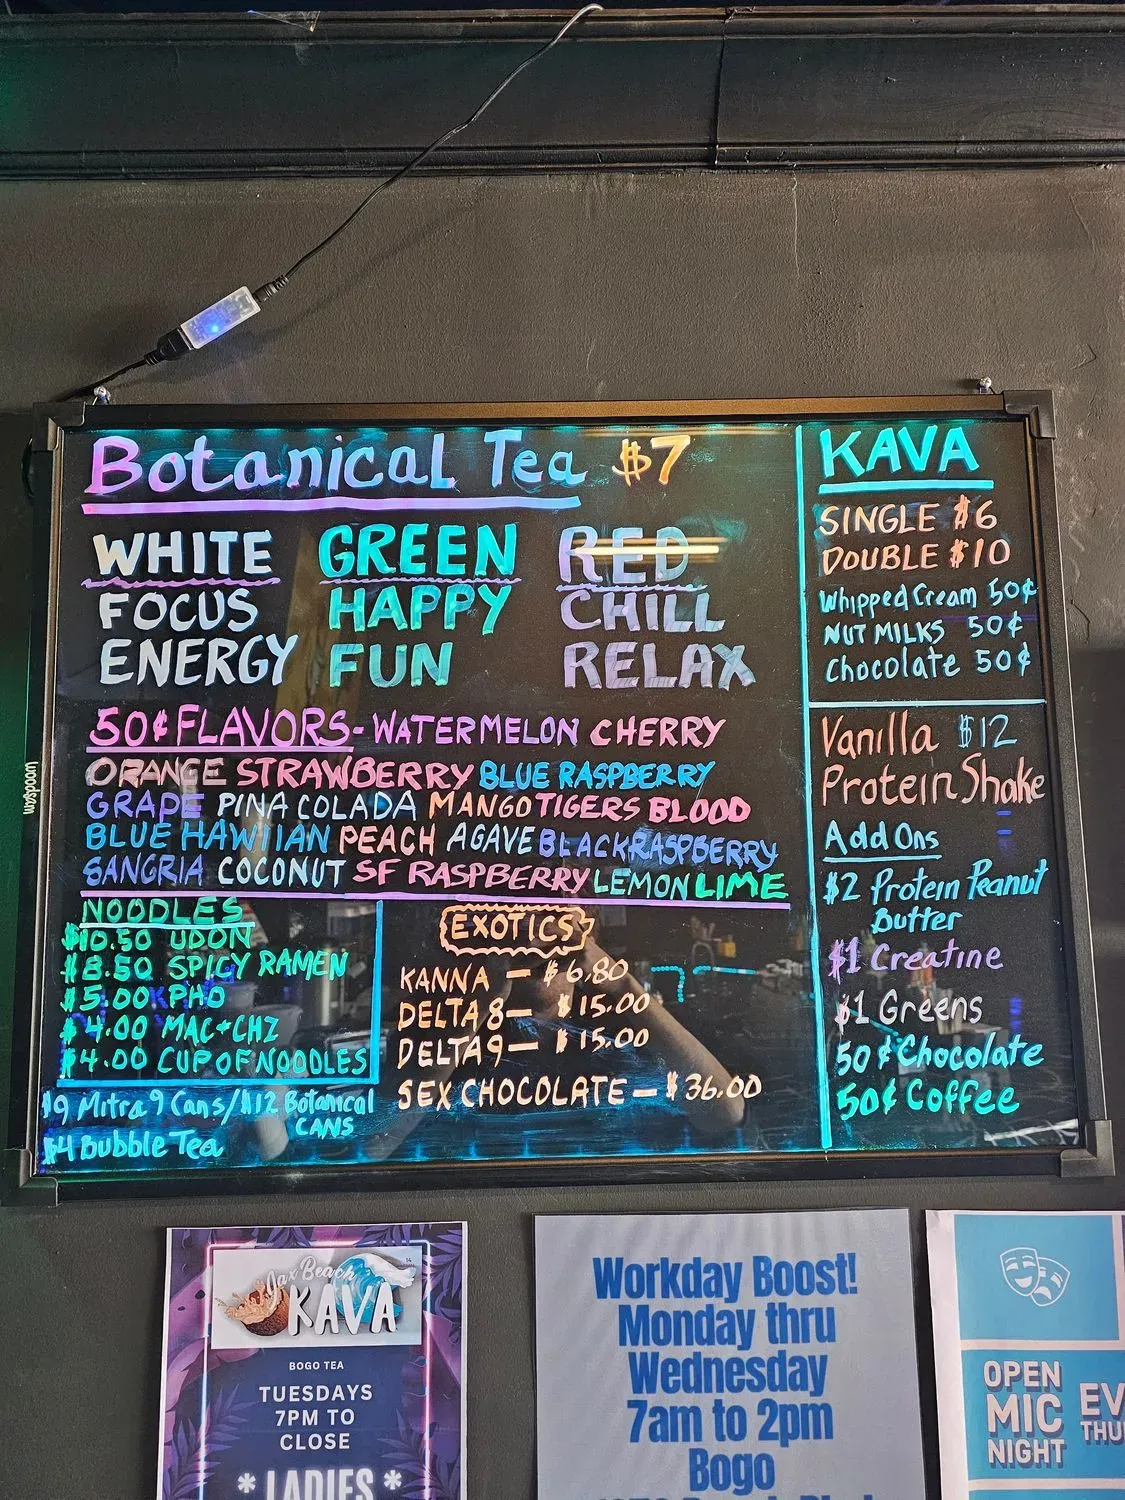 Botanical Tea $7
WHITE
FOCUS
ENERGY
GREEN
HAPPY
FUN
RED
CHILL
RELAX
50¢ FLAVORS- WATERMELON CHERRY
ORANGE STRAWBERRY BLUE RASPBERRY
GRAPE PINA COLADA MANGO TIGERS BLOOD
BLUE HAWIIAN PEACH AGAVE BLACKRASPBERRY
SANGRIA COCONUT SF RASPBERRY LEMON LIME
NOODLES
$10.50 UDON
$8.50 SPICY RAMEN
$5.00 PHO
$4.00 MAC+CHZ
$4.00 CUP OF NOODLES
$9 Mitra 9 Cans/$12 Botanical
CANS
$4 Bubble Tea
EXOTICS
KANNA — $6.80
DELTA 8— $15.00
DELTA 9— $15.00
SEX CHOCOLATE — $36.00
KAVA
SINGLE $6
DOUBLE $10
Whipped Cream 50¢
NUT MILKS 50¢
Chocolate 50¢
Vanilla $12
Protein Shake
Add Ons
$2 Protein Peanut
Butter
$1 Creatine
$1 Greens
50¢ Chocolate
50¢ Coffee
woodsam
Jax Beach
KAVA
BOGO TEA
TUESDAYS
7PM TO
CLOSE
* LADIES *
Workday Boost!
Monday thru
Wednesday
7am to 2pm
Bogo
OPEN
MIC
NIGHT
EV
THU